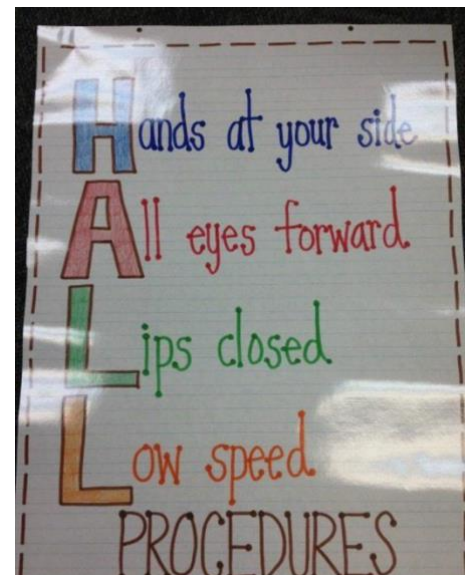 Hands at your side
All eyes forward
Lips closed
Low speed
PROCEDURES